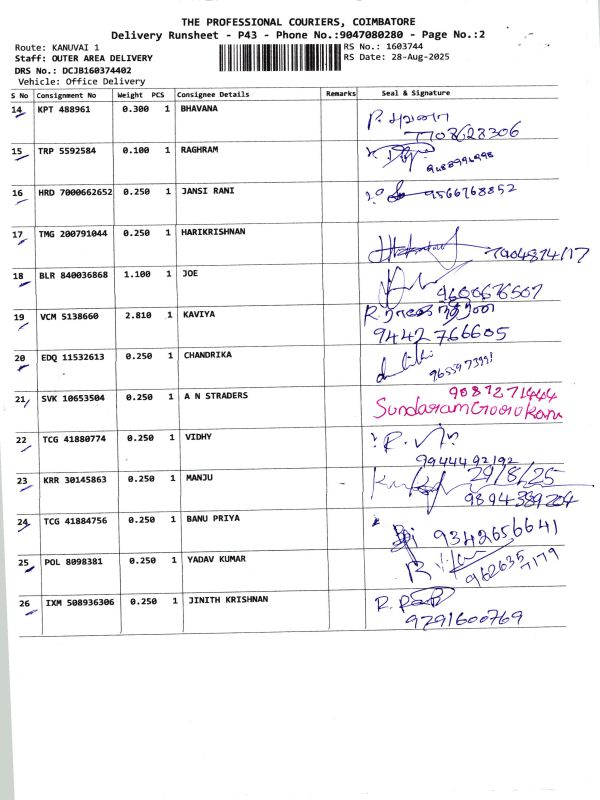 THE PROFESSIONAL COURIERS, COIMBATORE
Delivery Runsheet - P43 - Phone No.:9047080280 - Page No.:2
Route: KANUVAI 1
RS No.: 1603744
Staff: OUTER AREA DELIVERY
RS Date: 28-Aug-2025
DRS No.: DCJB160374402
Vehicle: Office Delivery
S No Consignment No Weight PCS Consignee Details Remarks Seal & Signature
14 KPT 488961 0.300 1 BHAVANA
7708628306
15 TRP 5592584 0.100 1 RAGHRAM
16 HRD 7000662652 0.250 1 JANSI RANI 9566768852
17 TMG 200791044 0.250 1 HARIKRISHNAN
18 BLR 840036868 1.100 1 JOE
9600676507
19 VCM 5138660 2.810 1 KAVIYA
9442766605
20 EDQ 11532613 0.250 1 CHANDRIKA
9655973991
21 SVK 10653504 0.250 1 A N STRADERS
22 TCG 41880774 0.250 1 VIDHY
9944492192
23 KRR 30145863 0.250 1 MANJU - 29/8/25
9894389204
24 TCG 41884756 0.250 1 BANU PRIYA 9342656641
25 POL 8098381 0.250 1 YADAV KUMAR
962635
7179
26 IXM 508936306 0.250 1 JINITH KRISHNAN
9291600769